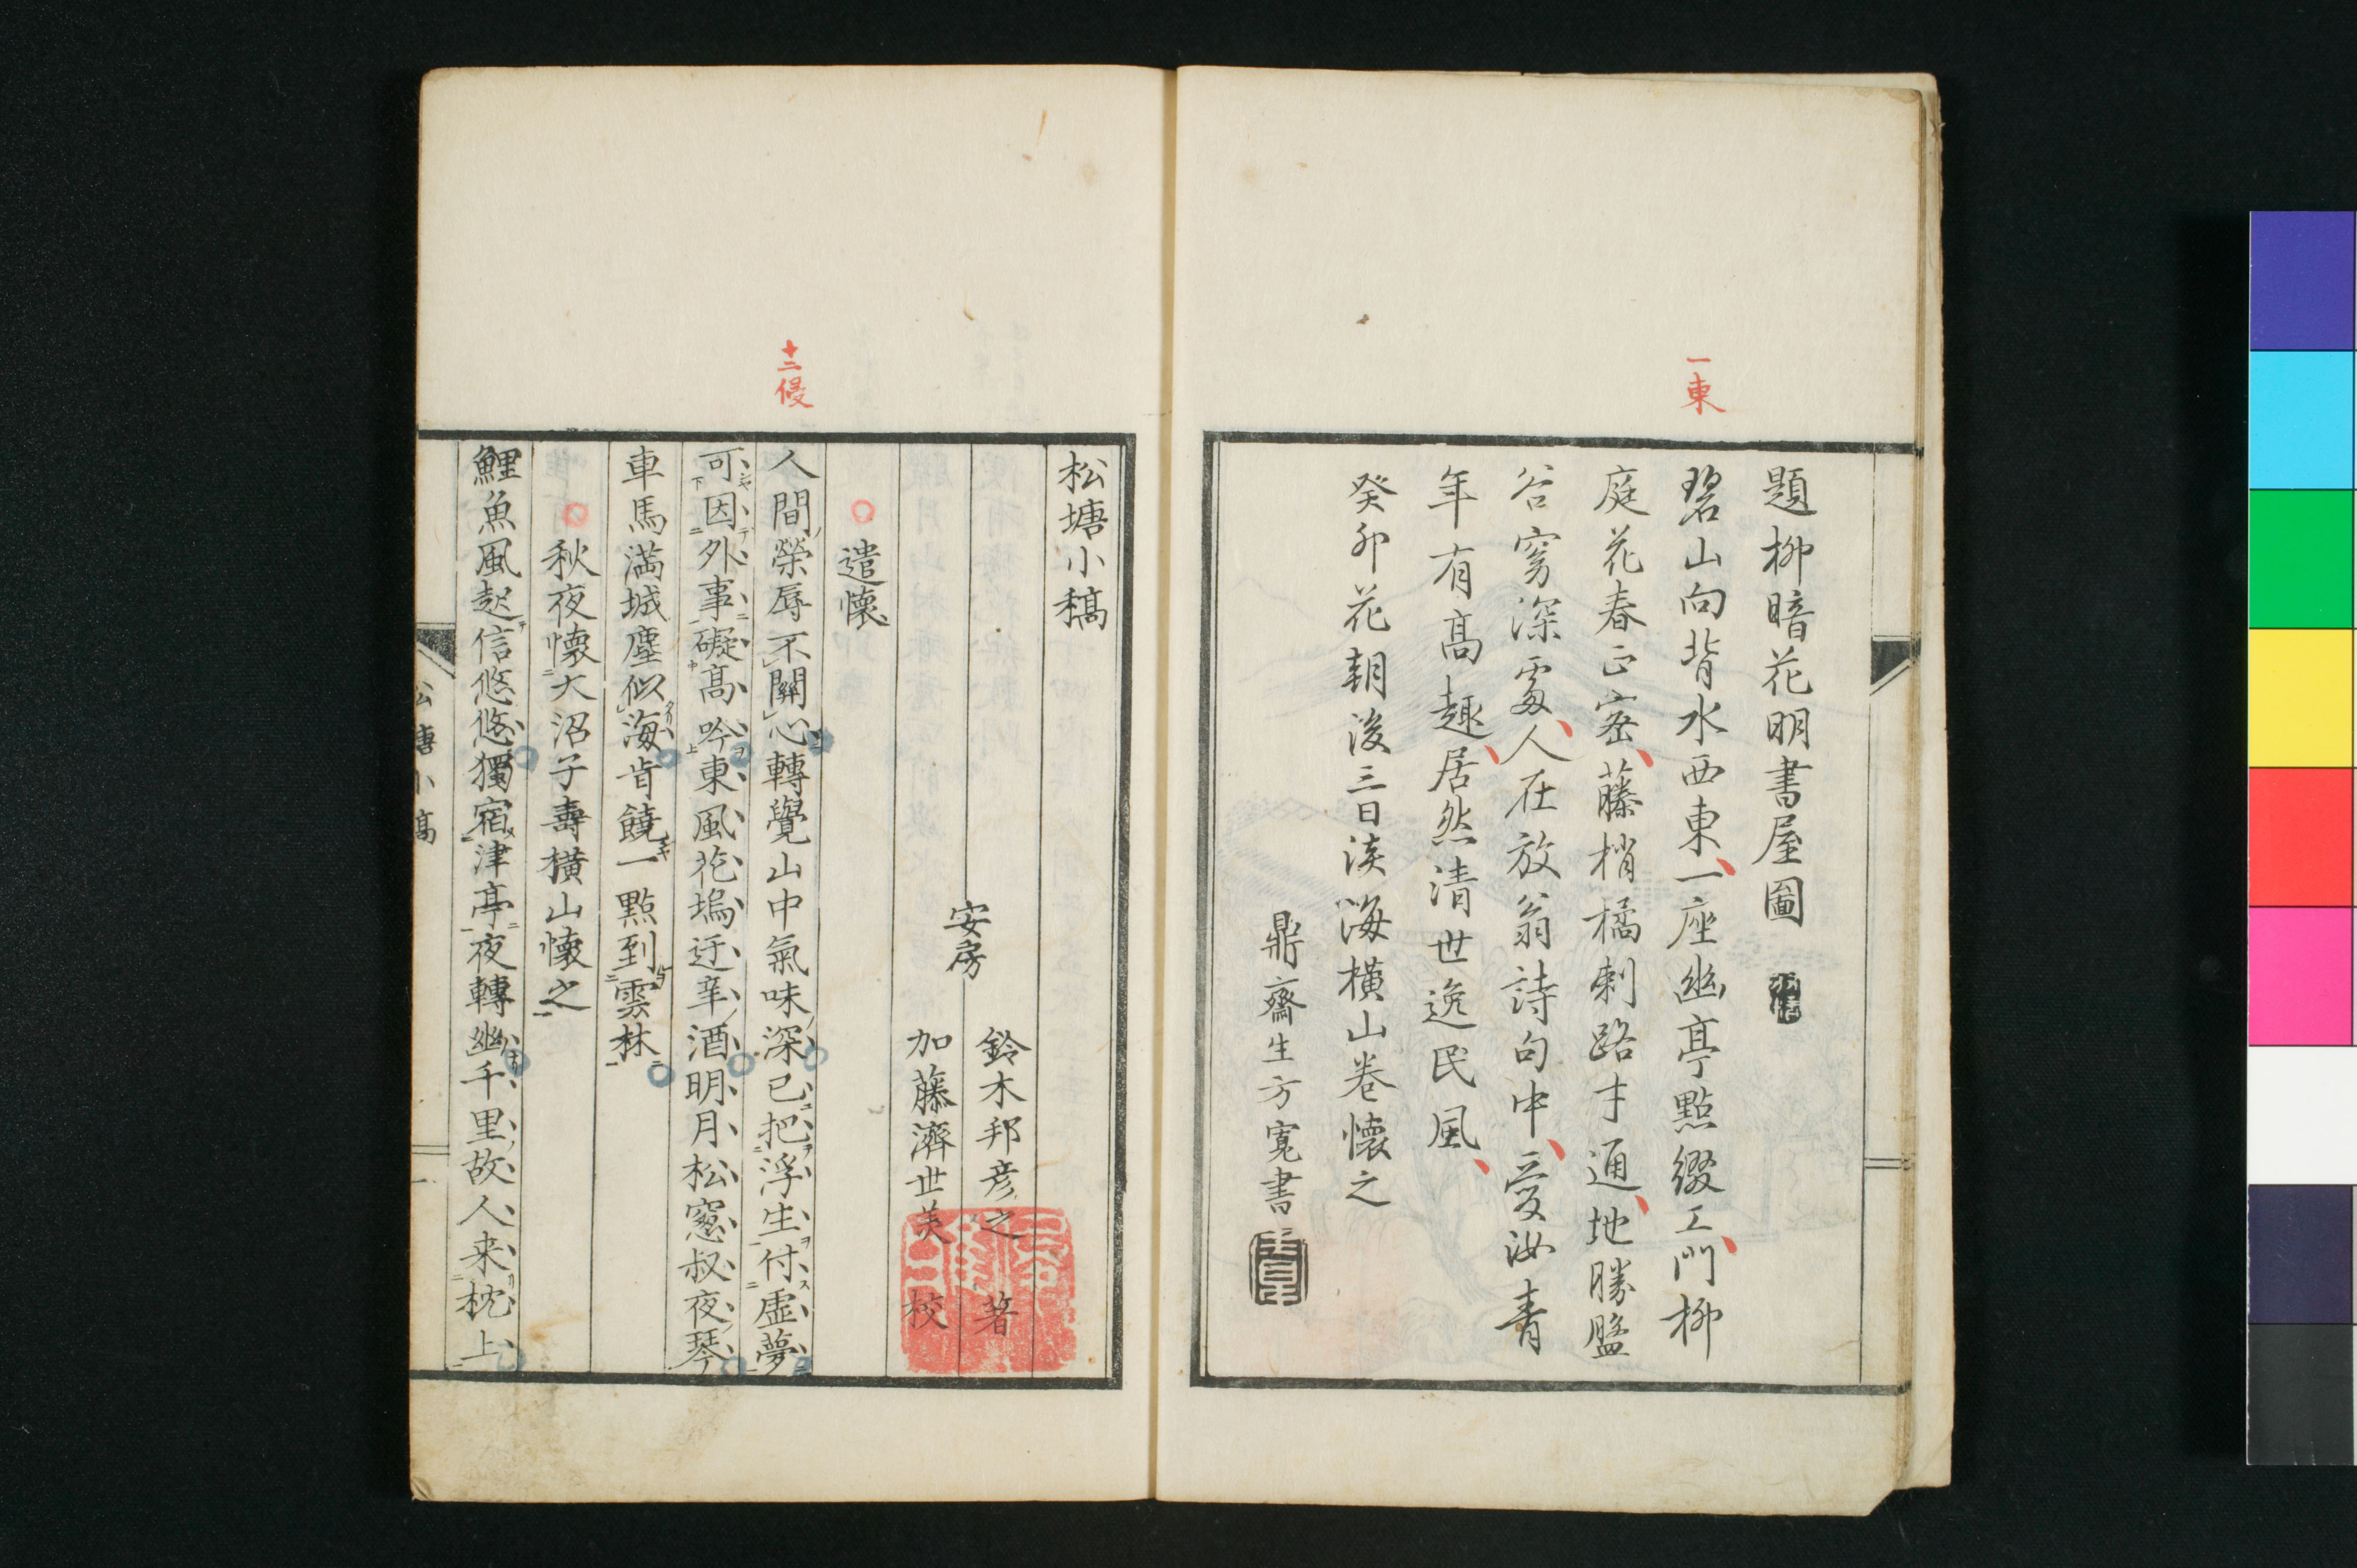 一東
題柳暗花明書屋圖
碧山向背水西東一座幽亭點綴工門柳
庭花春正密藤梢橘刺路才通地勝盤
谷窈深處人在放翁詩句中愛汝青
年有高趣居然清世逸民風
癸卯花朝後三日淡海横山卷懷之
鼎齋生方寛書
松塘小稿
安房 鈴木邦彦之 著
加藤濟世美 校
遣懷
十二侵
人間榮辱不關心轉覺山中氣味深已把浮生付虚夢
可因外事礙高吟東風花塢迂辛酒明月松窓叔夜琴
車馬満城塵似海肯饒一點到雲林
秋夜懷大沼子壽横山懷之
鯉魚風起信悠悠獨宿津亭夜轉幽千里故人来枕上